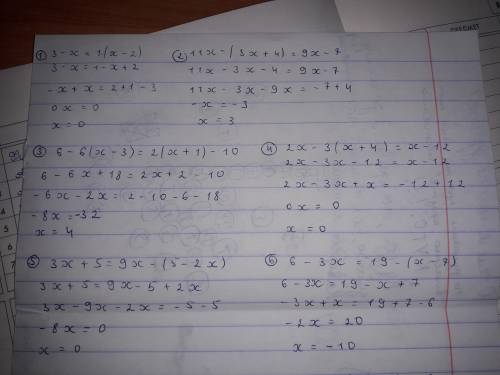 ① 3-x=1(x-2)
3-x=1-x+2
-x+x=2+1-3
0x=0
x=0
② 11x-(3x+4)=9x-7
11x-3x-4=9x-7
11x-3x-9x=-7+4
-x=-3
x=3
③ 6-6(x-3)=2(x+1)-10
6-6x+18=2x+2-10
-6x-2x=2-10-6-18
-8x=-32
x=4
④ 2x-3(x+4)=x-12
2x-3x-12=x-12
2x-3x+x=-12+12
0x=0
x=0
⑤ 3x+5=9x-(5-2x)
3x+5=9x-5+2x
3x-9x-2x=-5-5
-8x=0
x=0
⑥ 6-3x=19-(x-7)
6-3x=19-x+7
-3x+x=19+7-6
-2x=20
x=-10